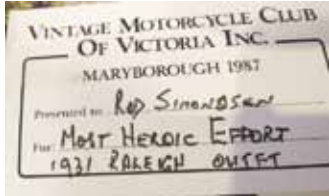 VINTAGE MOTORCYCLE CLUB
OF VICTORIA INC.
MARYBOROUGH 1987
Presented to: ROD SIMONDSEN
For: MOST HEROIC EFFORT
1931 RALEIGH OUTFT